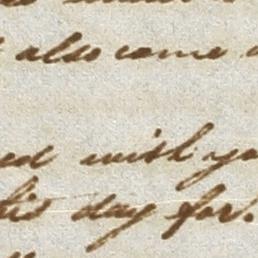 also come
ed with yo
his day for